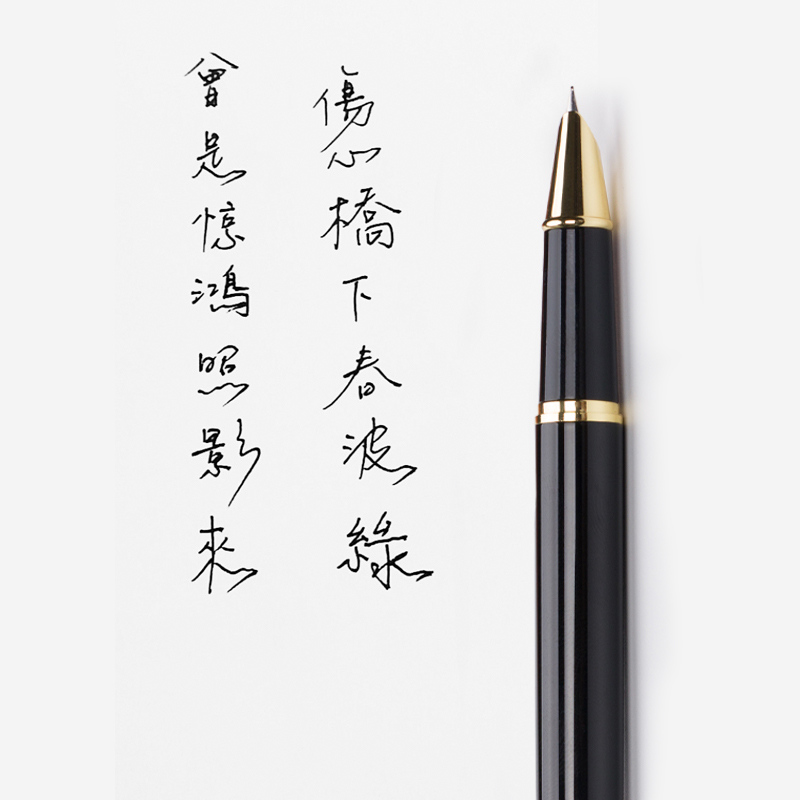 傷心橋下春波綠
曾是惊鴻照影來